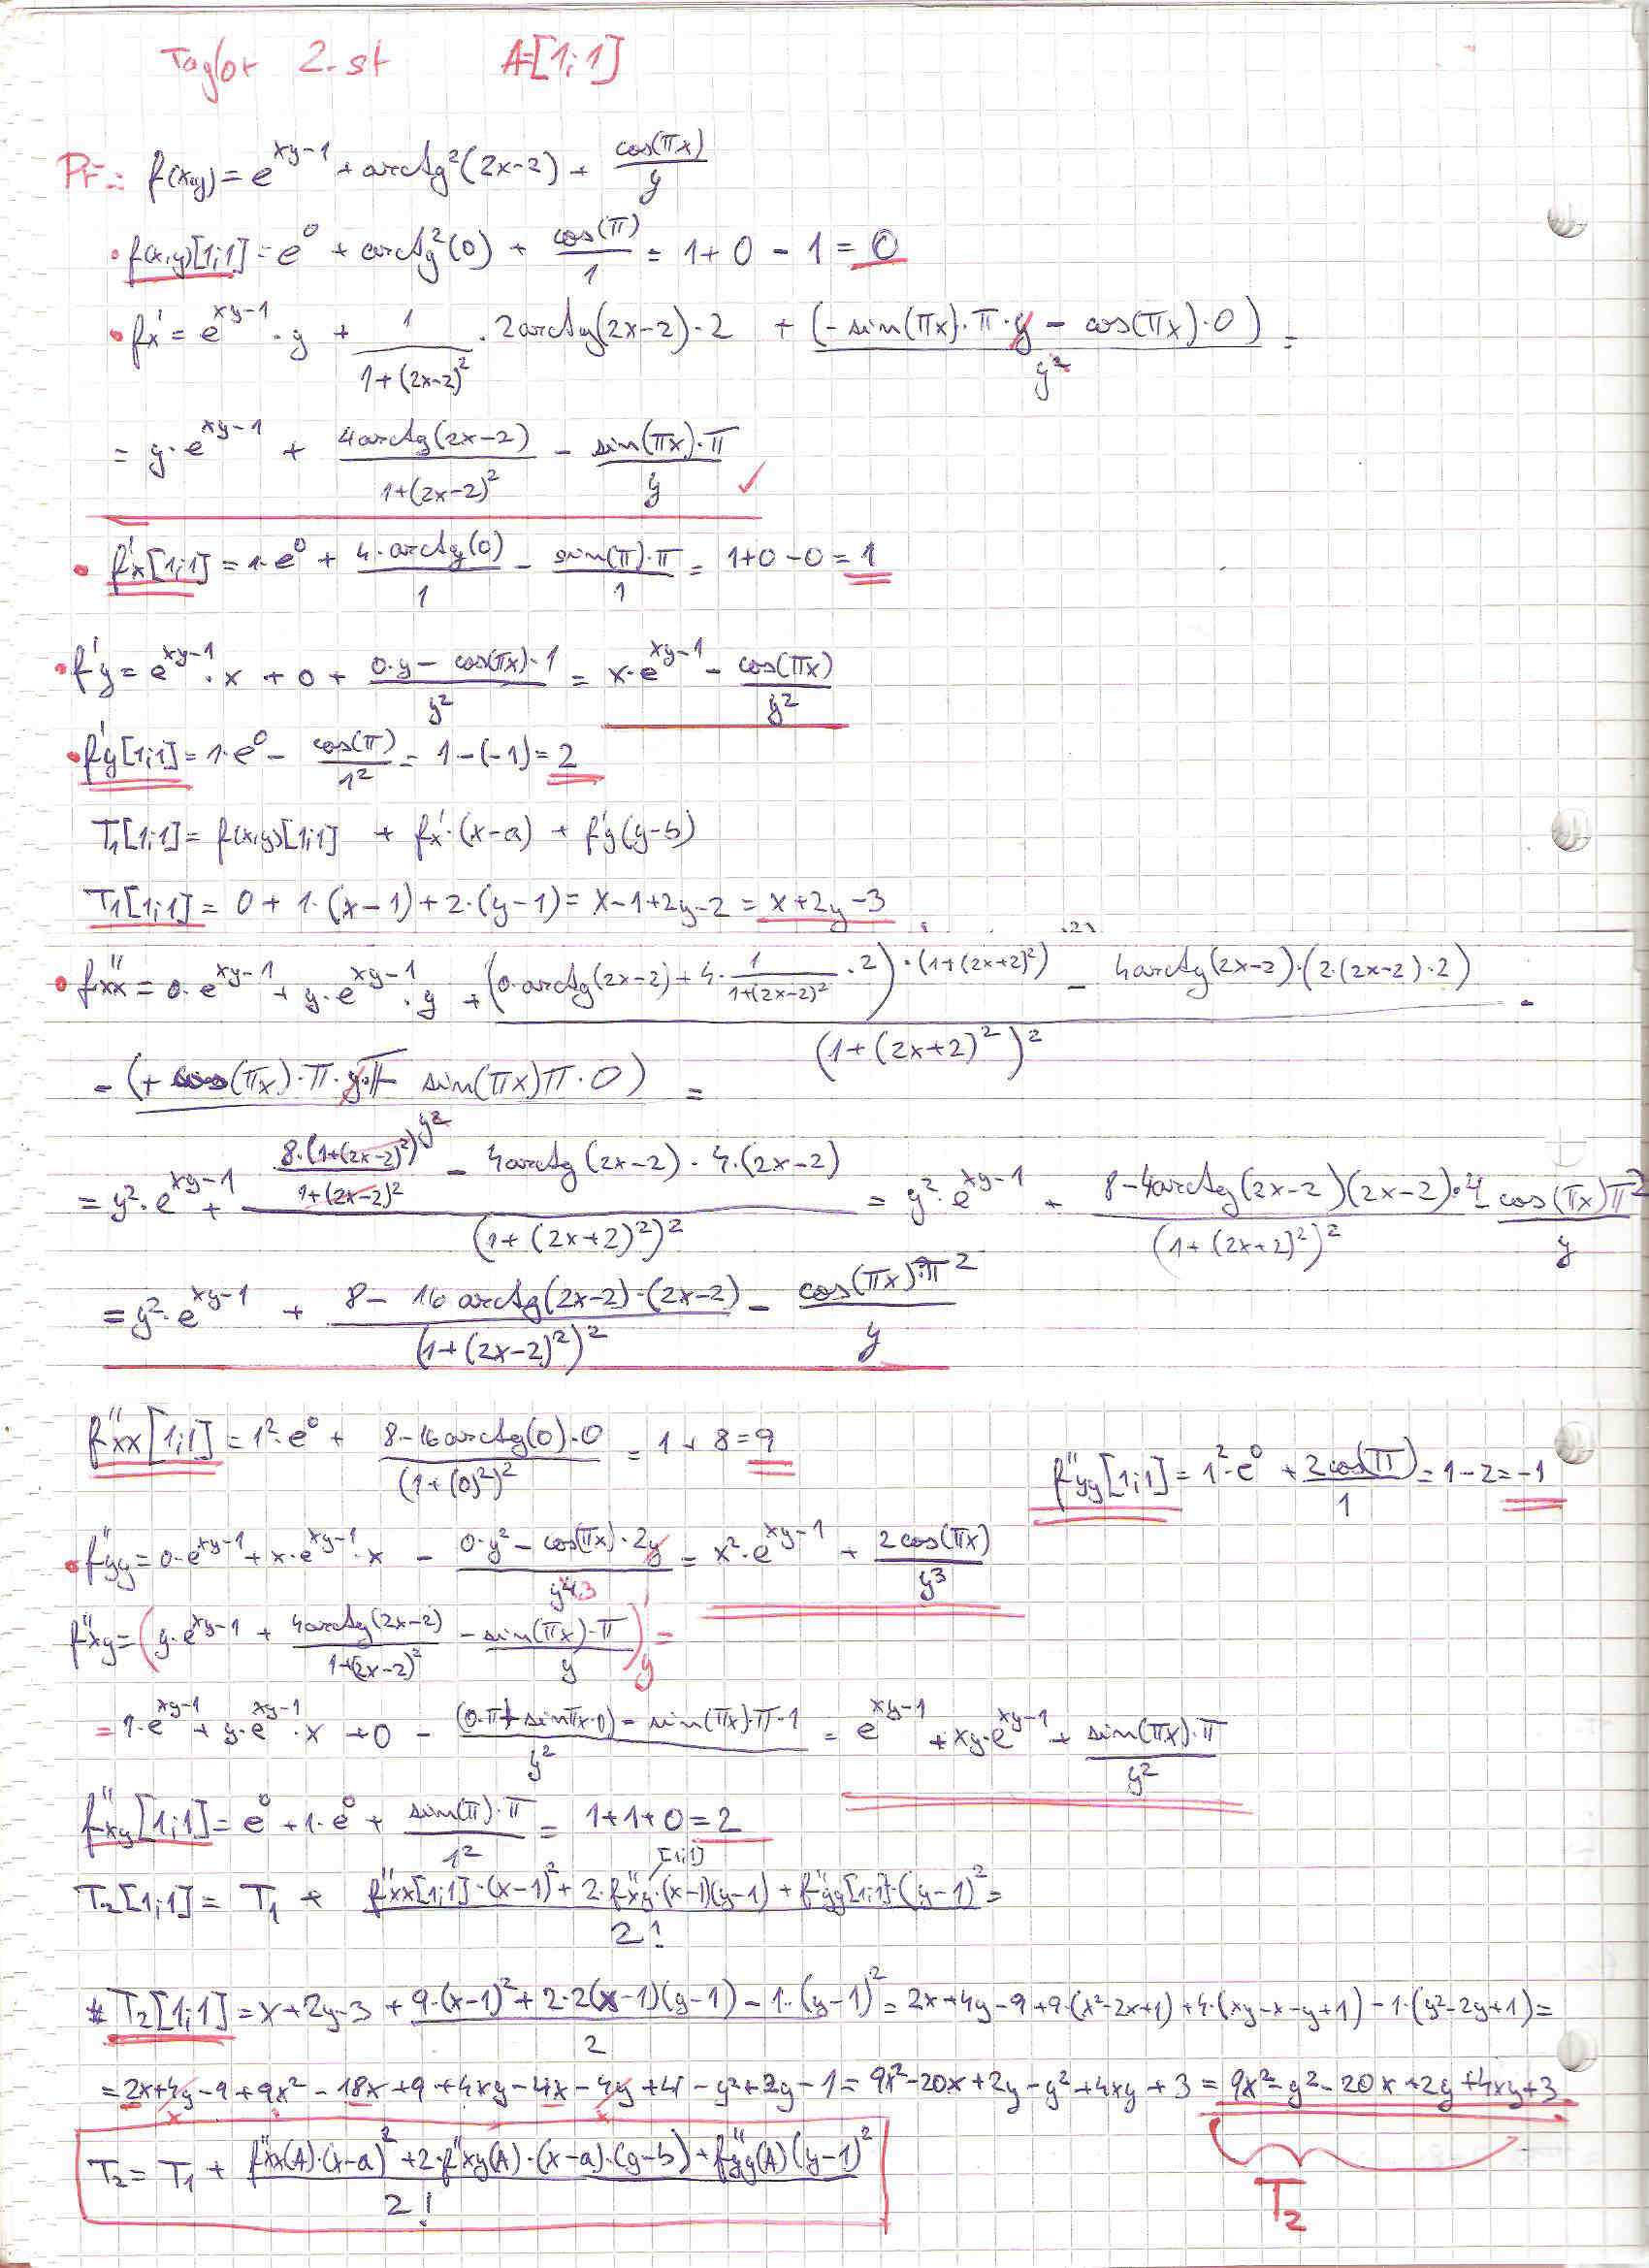 Taylor 2. st A=[1;1]
Př.: f(x,y) = e^(xy-1) + arctg²(2x-2) + cos(πx)/y
• f(x,y)[1;1] = e^0 + arctg²(0) + cos(π)/1 = 1+0-1 = 0
• f'x = e^(xy-1)·y + 1/(1+(2x-2)²) · 2arctg(2x-2)·2 + (-sin(πx)·π·y - cos(πx)·0)/y² =
= y·e^(xy-1) + 4arctg(2x-2)/(1+(2x-2)²) - sin(πx)·π/y ✓
• f'x[1;1] = 1·e^0 + 4·arctg(0)/1 - sin(π)·π/1 = 1+0-0 = 1
• f'y = e^(xy-1)·x + 0 + (0·y - cos(πx)·1)/y² = x·e^(xy-1) - cos(πx)/y²
• f'y[1;1] = 1·e^0 - cos(π)/1² = 1-(-1) = 2
T₁[1;1] = f(x,y)[1;1] + f'x·(x-a) + f'y(y-b)
T₁[1;1] = 0 + 1·(x-1) + 2·(y-1) = x-1+2y-2 = x+2y-3
• f''xx = 0·e^(xy-1) + y·e^(xy-1)·y + ((0·arctg(2x-2) + 4·1/(1+(2x-2)²)·2)·(1+(2x+2)²) - 4arctg(2x-2)·(2·(2x-2)·2))/(1+(2x+2)²)² -
- (+cos(πx)·π·y·π - sin(πx)π·0)/y² =
= y²·e^(xy-1) + (8·(1+(2x-2)²)/(1+(2x-2)²) - 4arctg(2x-2)·4·(2x-2))/(1+(2x+2)²)² = y²·e^(xy-1) + (8-4arctg(2x-2)(2x-2)·4)/(1+(2x+2)²)² - cos(πx)π²/y
= y²·e^(xy-1) + (8-16arctg(2x-2)·(2x-2))/(1+(2x-2)²)² - cos(πx)·π²/y
f''xx[1;1] = 1²·e^0 + (8-16arctg(0)·0)/(1+(0)²)² = 1+8 = 9
f''yy[1;1] = 1²·e^0 + 2cos(π)/1 = 1-2 = -1
• f''yy = 0·e^(xy-1) + x·e^(xy-1)·x - (0·y² - cos(πx)·2y)/y⁴³ = x²·e^(xy-1) + 2cos(πx)/y³
f''xy = (y·e^(xy-1) + 4arctg(2x-2)/(1+(2x-2)²) - sin(πx)·π/y)'y =
= 1·e^(xy-1) + y·e^(xy-1)·x + 0 - ((0·π+sinπx·0) - sin(πx)·π·1)/y² = e^(xy-1) + xy·e^(xy-1) + sin(πx)·π/y²
f''xy[1;1] = e^0 + 1·e^0 + sin(π)·π/1² = 1+1+0 = 2
T₂[1;1] = T₁ + (f''xx[1;1]·(x-1)² + 2·f''xy[1;1]·(x-1)(y-1) + f''yy[1;1]·(y-1)²)/2! =
* T₂[1;1] = x+2y-3 + (9·(x-1)² + 2·2(x-1)(y-1) - 1·(y-1)²)/2 = 2x+4y-9+9·(x²-2x+1)+4·(xy-x-y+1)-1·(y²-2y+1) =
= 2x+4y-9+9x²-18x+9+4xy-4x-4y+4-y²+2y-1 = 9x²-20x+2y-y²+4xy+3 = 9x²-y²-20x+2y+4xy+3
T₂ = T₁ + (f''xx(A)·(x-a)² + 2·f''xy(A)·(x-a)·(y-b) + f''yy(A)(y-1)²)/2!
T₂